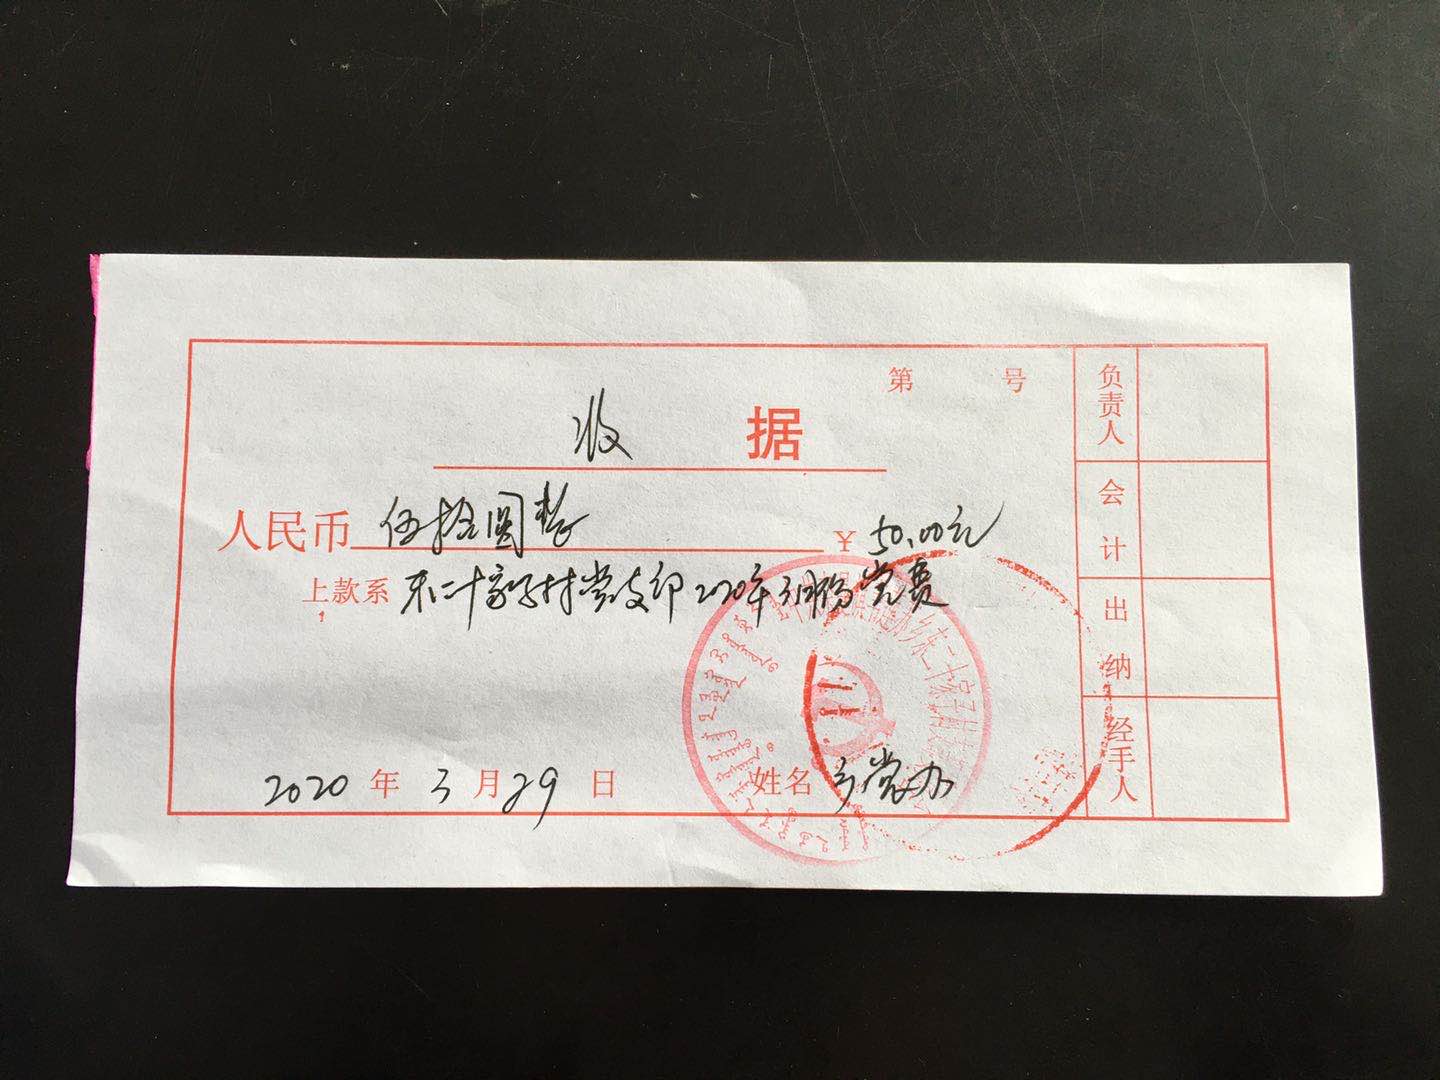 第 号
收 据
人民币 伍拾圆整 ¥ 50.00元
上款系 东二十家子村党支部2020年3月份党费
2020 年 3 月 29 日 姓名 乡党办
负责人
会计
出纳
经手人
乡东二十家子村